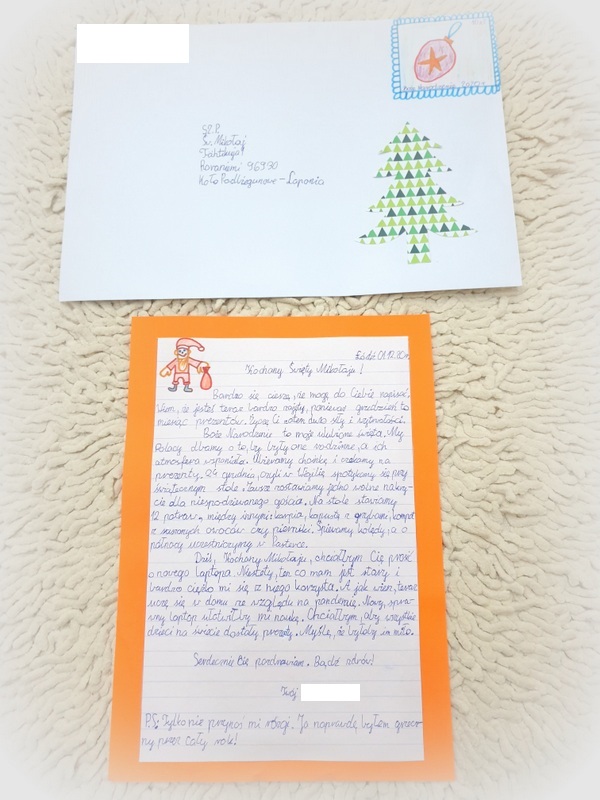 Sz.P.
Św. Mikołaj
Tahtikuja 1
Rovaniemi 96930
Koło Podbiegunowe - Laponia
Łódź, 01.12.20r.
Kochany Święty Mikołaju!
Bardzo się cieszę, że mogę do Ciebie napisać.
Wiem, że jesteś teraz bardzo zajęty, ponieważ grudzień to
miesiąc prezentów. Życzę Ci zatem dużo siły i wytrwałości.
Boże Narodzenie to moje ulubione święta. My
Polacy dbamy o to, by były one rodzinne, a ich
atmosfera wspaniała. Ubieramy choinkę i czekamy na
prezenty. 24 grudnia, czyli w Wigilię spotykamy się przy
świątecznym stole. Zawsze zostawiamy jedno wolne nakry-
cie dla niespodziewanego gościa. Na stole stawiamy
12 potraw, między innymi: karpia, kapustę z grzybami, kompot
z suszonych owoców czy pierniki. Śpiewamy kolędy, a o
północy uczestniczymy w Pasterce.
Dziś, Kochany Mikołaju, chciałbym Cię prosić
o nowego laptopa. Niestety, ten co mam jest stary i
bardzo ciężko mi się z niego korzysta. A jak wiesz, teraz
uczę się w domu ze względu na pandemię. Nowy, spraw-
ny laptop ułatwiłby mi naukę. Chciałbym, aby wszystkie
dzieci na świecie dostały prezenty. Myślę, że byłoby im miło.
Serdecznie Cię pozdrawiam. Bądź zdrów!
Twój
P.S. Tylko nie przynoś mi rózgi. Ja naprawdę byłem grzecz-
ny przez cały rok!